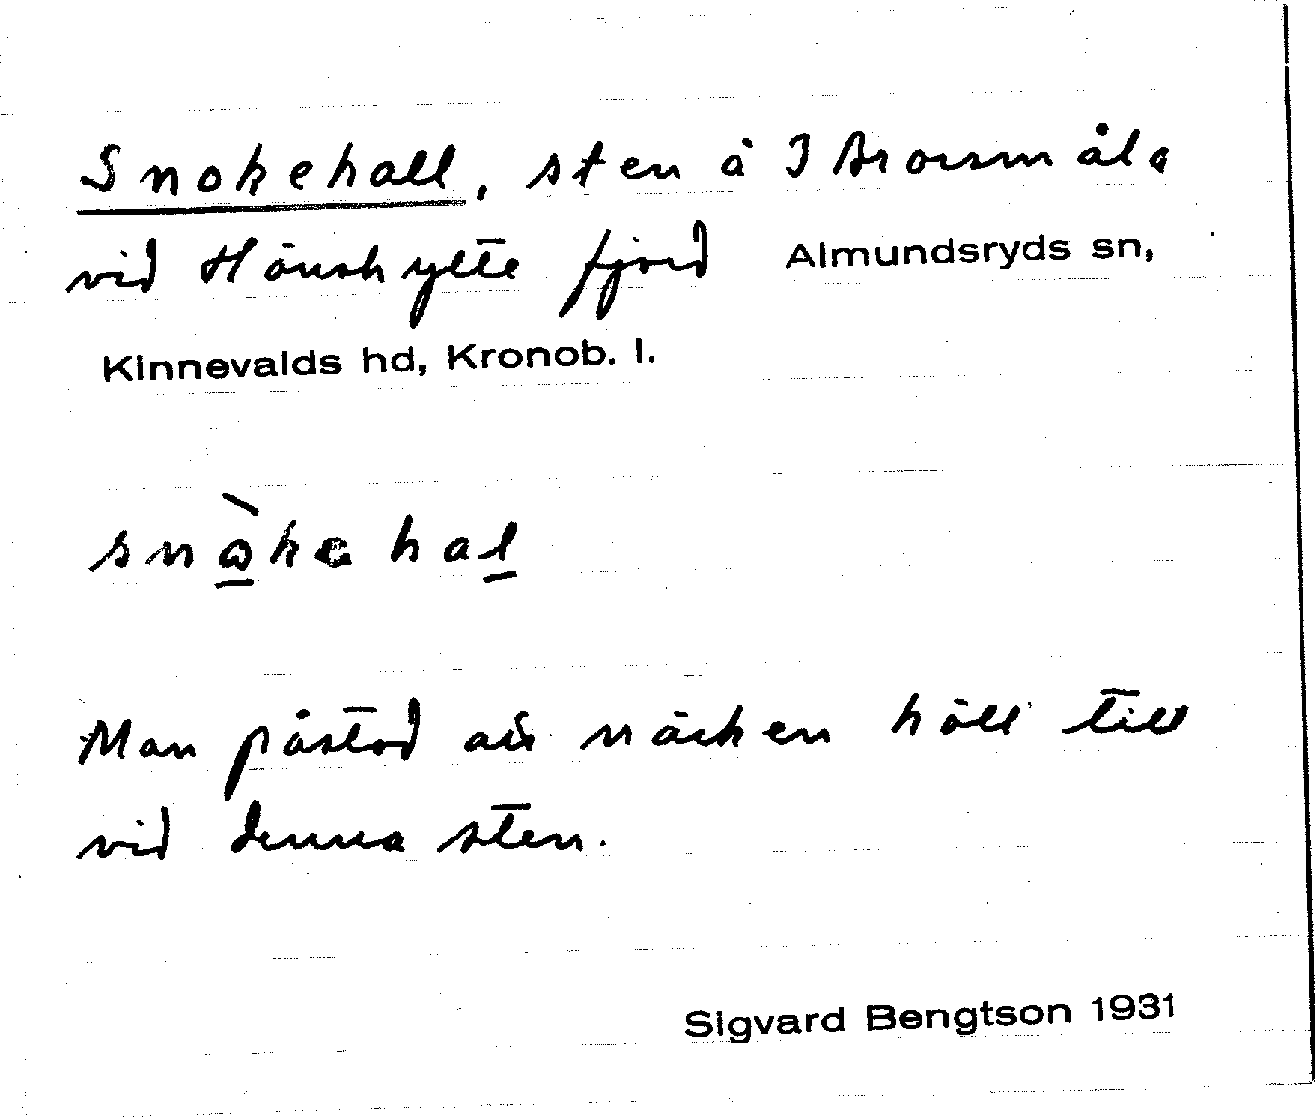 Snokehall, sten å Ibrorsmåla
vid Hönshylte fjord Almundsryds sn,
Kinnevalds hd, Kronob. l.
snòkehal
Man påstod att näcken höll till
vid denna sten.
Sigvard Bengtson 1931